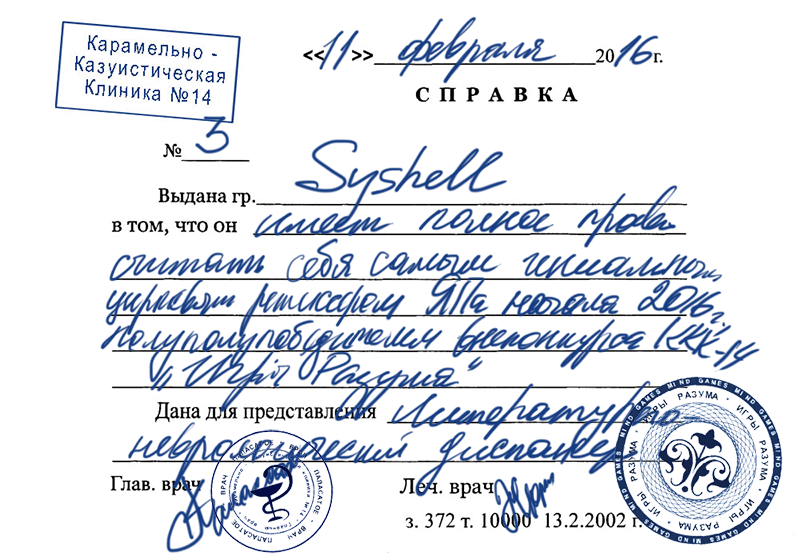 Карамельно -
Казуистическая
Клиника №14
«11» февраля 2016г.
СПРАВКА
№ 3
Выдана гр. Syshell
в том, что он имеет полное право
считать себя самым гениальным
цирковым режиссером ЯПа начала 2016г.
полуполупобедителем внеконкурса ККК-14
"Игры Разума"
Дана для представления Литературно
невротический диспансер
Глав. врач
Леч. врач
з. 372 т. 10000 13.2.2002 г.
ВРАЧ ПАПАСАТОЕ
MIND GAMES MIND GAMES MIND GAMES
ИГРЫ РАЗУМА · ИГРЫ РАЗУМА · ИГРЫ РАЗУМА